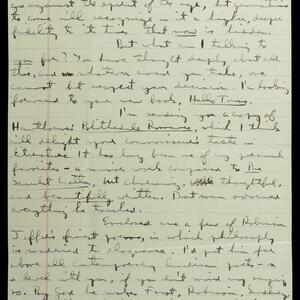 go against the spirit of the age, but generations
to come will recognize in it a higher, deeper
fidelity to its time that now is hidden.
But what am I talking to
you for? You have thought deeply about all
this, and whatever road you take, we
cannot but respect your decision. I'm looking
forward to your new book, Hello Tom.
I'm sending you a copy of
Hawthorne's Blithedale Romance, which I think
will delight your connoisseur's taste in
literature. It has long been one of my personal
favorites - a minor work compared to The
Scarlet Letter, but charming, thoughtful,
and beautifully written. That man adorned
everything he touched.
Enclosed are a few of Robinson
Jeffers' finest poems, in which philosophy
is married to eloquence. I'd put him far
above all contemporary American poets - on
a level with you, if you don't mind my saying
so. By God he makes Frost, Robinson,